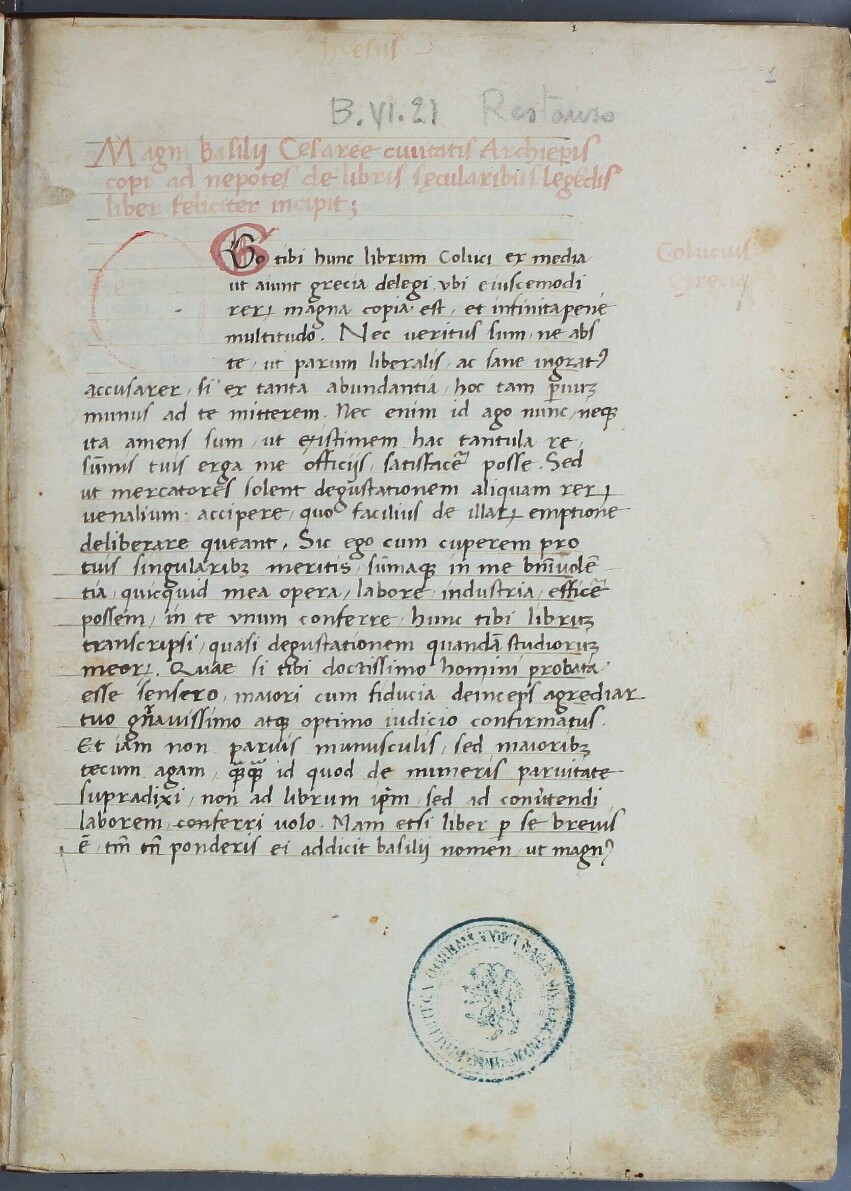 1
B.VI.21 Restauro
Magni Basilij Cesaree ciuitatis Archiepis
copi ad nepotes de libris sęcularibus legēdis
liber feliciter incipit;
Ego tibi hunc librum Coluci ex media
Colucius
ut aiunt grecia delegi. vbi eiuscemodi
Grecia
rerꝝ magna copia est, et infinita pene
multitudo. Nec veritus sum, ne abs
te, ut parum liberalis, ac sane ingratꝰ
accusarer, si ex tanta abundantia, hoc tam paruuꝫ
munus ad te mitterem. Nec enim id ago nunc, neqꝫ
ita amens sum, ut existimem hac tantula re,
sūmis tuis erga me officijs, satisfacē posse. Sed
ut mercatores solent degustationem aliquam rerꝝ
uenalium accipere, quo facilius de illarꝝ emptione
deliberare queant. Sic ego cum cuperem pro
tuis singularibꝫ meritis, sūmaqꝫ in me bniuolē
tia, quicquid mea opera, labore, industria, efficē
possem, in te vnum conferre, hunc tibi libruꝫ
transcripsi, quasi degustationem quandā studioruꝫ
meorꝝ. Quae si tibi doctissimo homini probata
esse sensero, maiori cum fiducia deinceps agrediar
tuo gnauissimo atqꝫ optimo iudicio confirmatus.
Et iam non paruis munusculis, sed maioribꝫ
tecum agam, qꝗ̄ id quod de muneris paruitate
supradixi, non ad librum ipm̄, sed ad conūtendi
laborem, conferri uolo. Nam etsi liber ꝑ se breuis
ē, tm̄ tn̄ ponderis ei addicit basilij nomen, ut magnꝰ